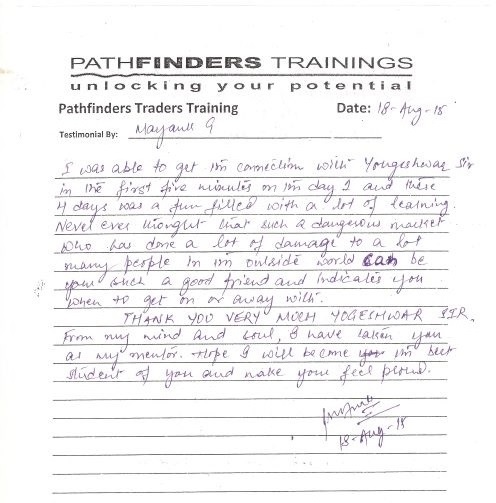 PATHFINDERS TRAININGS
unlocking your potential
Pathfinders Traders Training Date: 18-Aug-15
Testimonial By: Mayank G
I was able to get in connection with Yougeshwar Sir
in the first five minutes on in day 1 and these
4 days was a fun filled with a lot of learning.
Never ever thought that such a dangerous market
who has done a lot of damage to a lot
many people in in outside world can be
your such a good friend and Indicates you
when to get on or away with.
THANK YOU VERY MUCH YOGESHWAR SIR.
From my mind and soul, I have taken you
as my mentor. Hope I will become in best
student of you and make your feel proud.
18-Aug-15